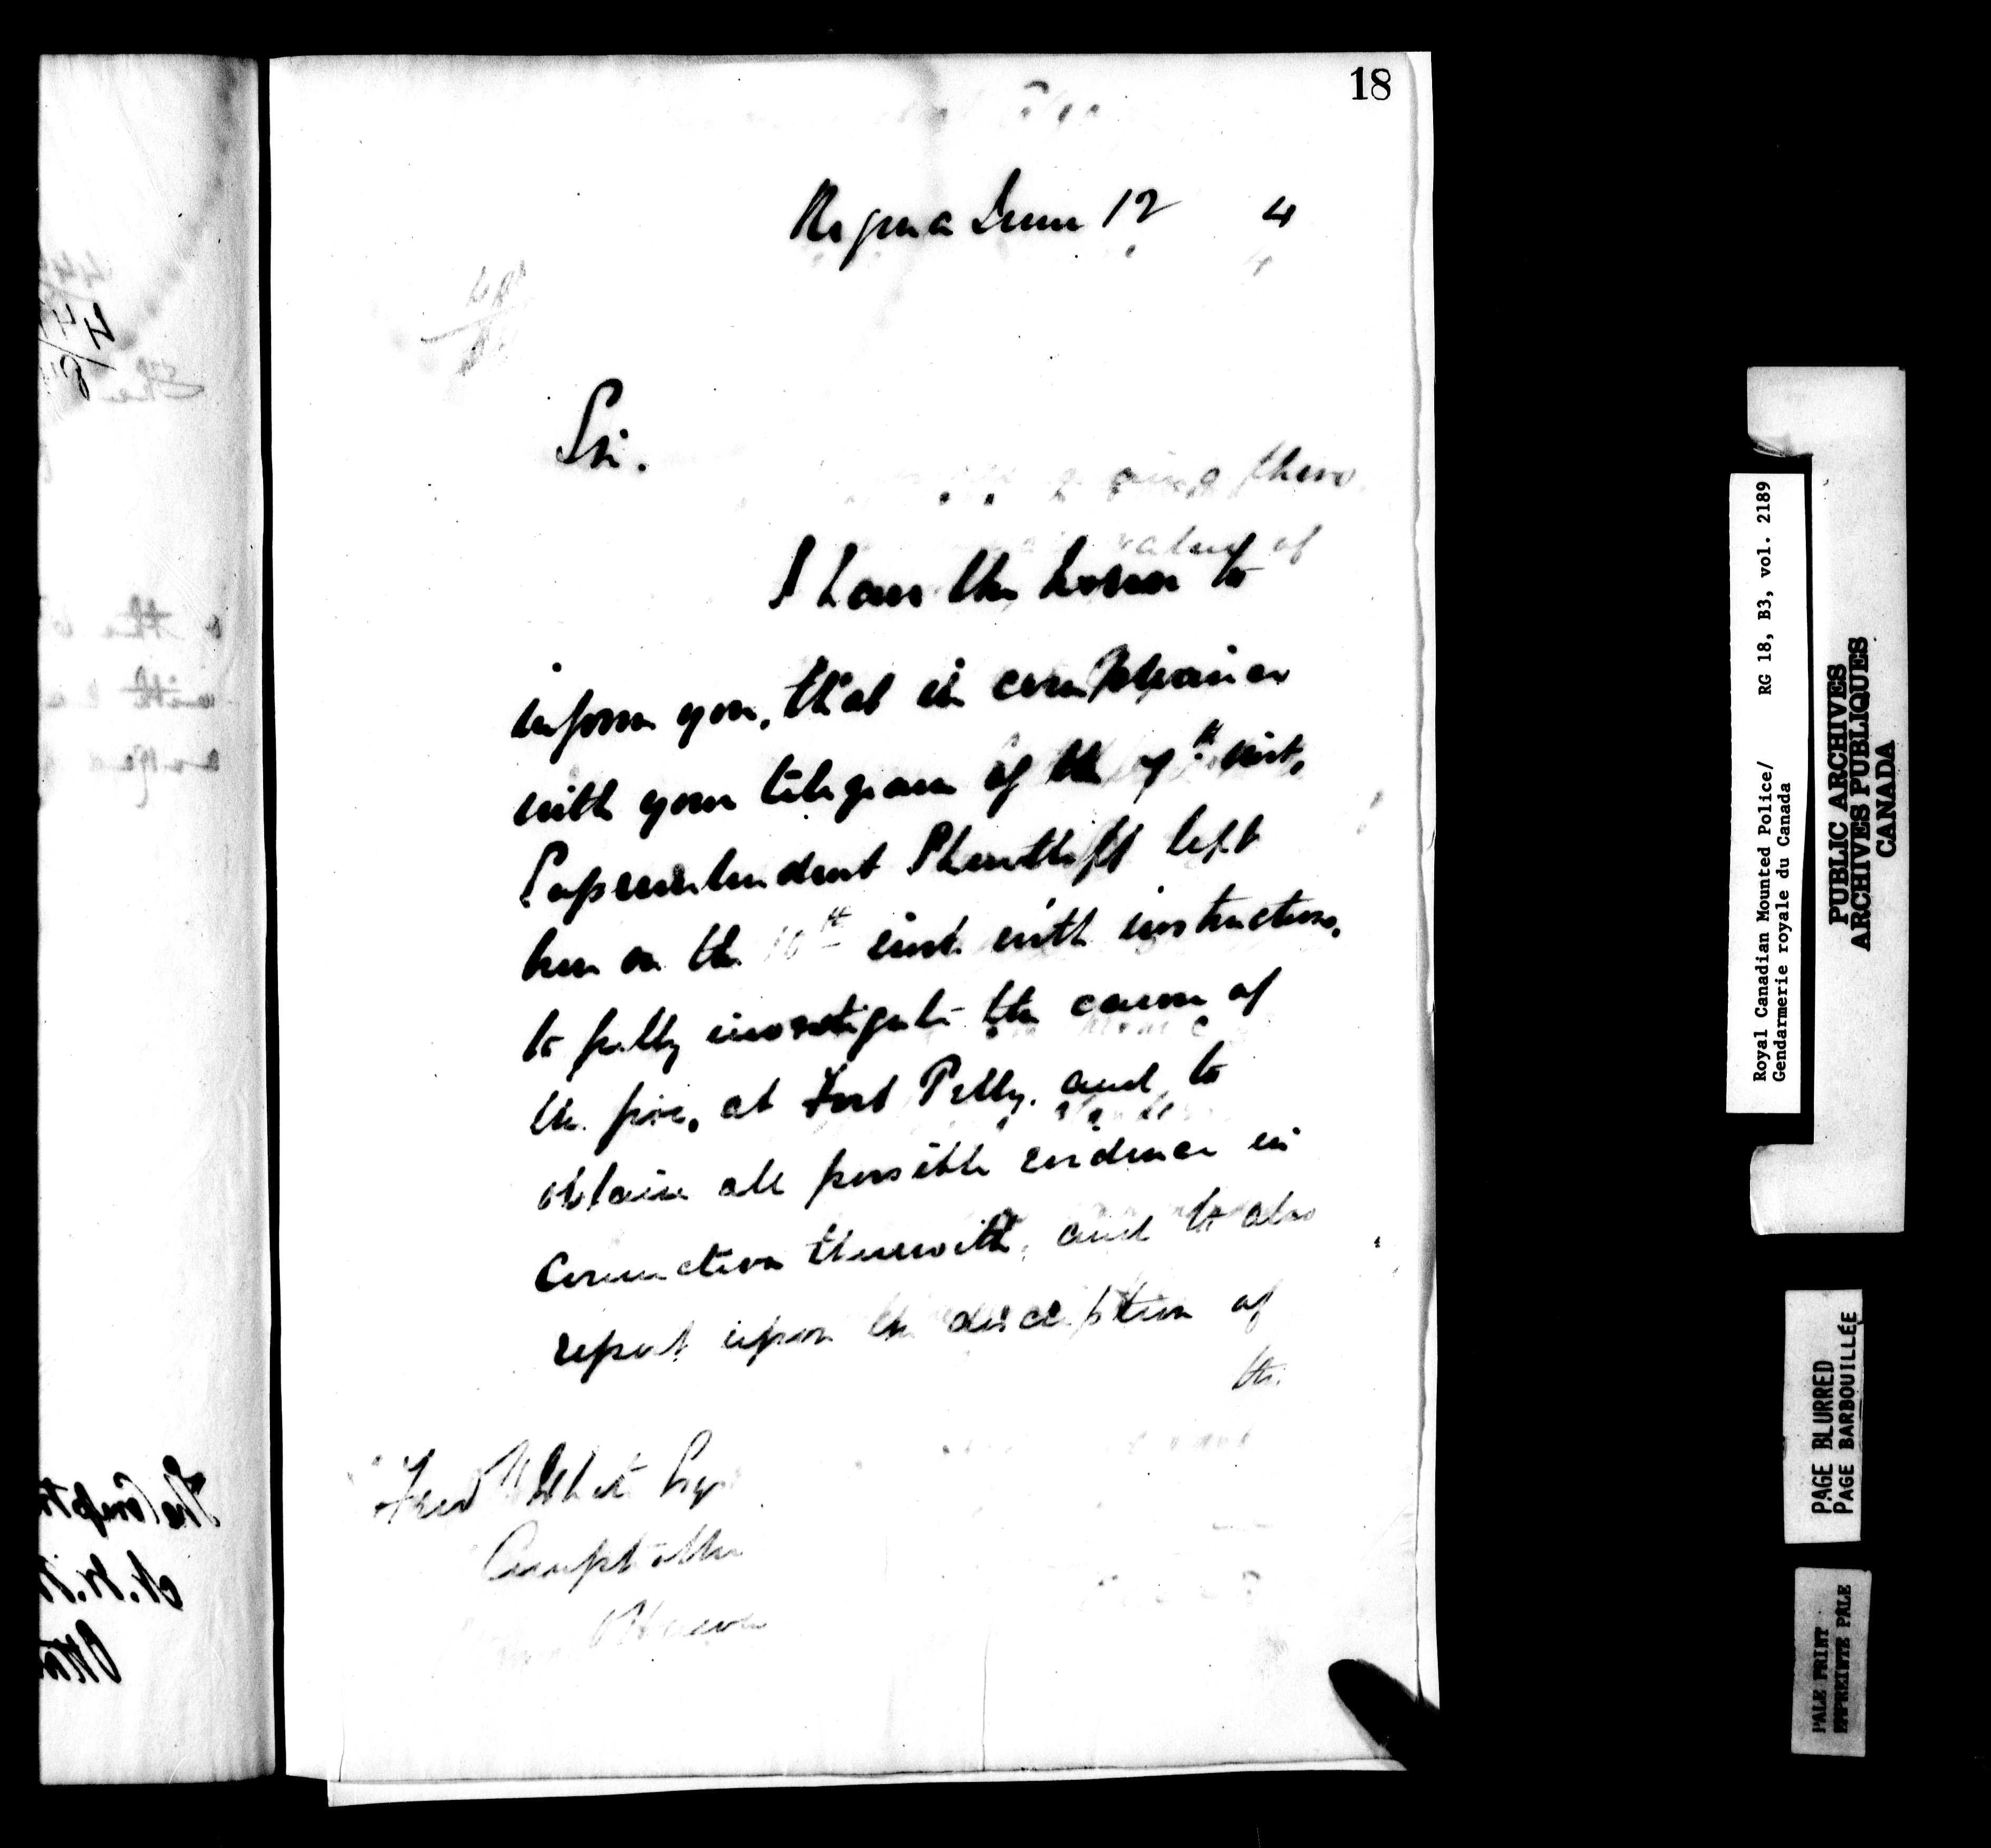 18
Regina June 12 4
Sir.
I have the honor to
inform you, that in compliance
with your telegram of the 7th inst,
Superintendent Shurtliff left
here on the 10th inst with instructions,
to fully investigate the cause of
the fire, at Fort Pelly, and to
obtain all possible evidence in
connection therewith, and to also
report upon the description of
the.
Fred White Esq
Comptroller
Ottawa
Royal Canadian Mounted Police/ RG 18, B3, vol. 2189
Gendarmerie royale du Canada
PUBLIC ARCHIVES
ARCHIVES PUBLIQUES
CANADA
PAGE BLURRED
PAGE BARBOUILLÉE
PALE PRINT
EMPREINTE PALE